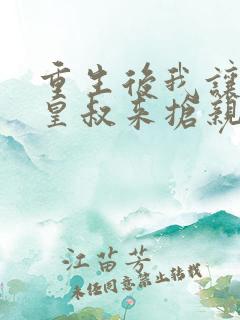 重生後我讓
皇叔来搶親
江苗芳
未经同意禁止转载